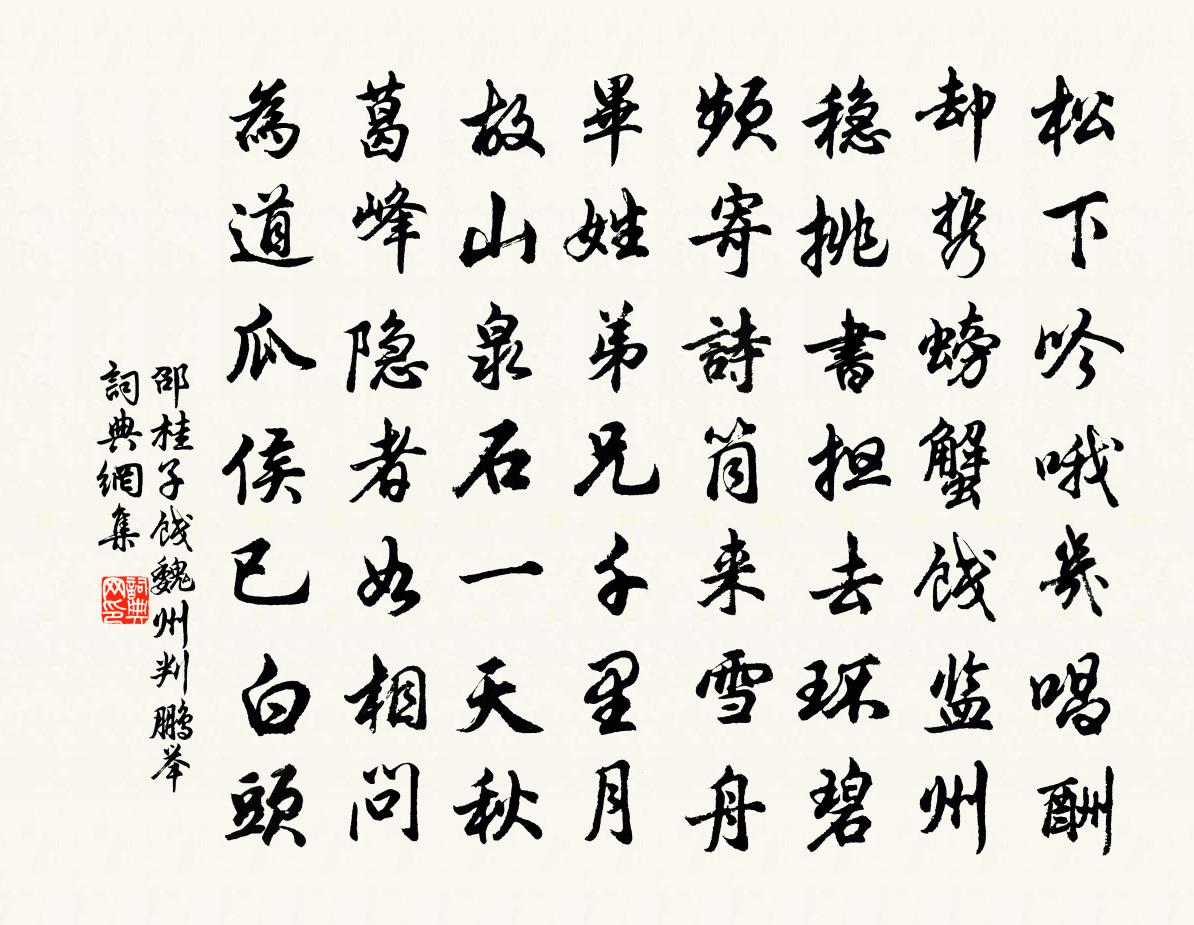 松下吟哦几唱酬
却携螃蟹饯监州
稳挑书担去环碧
频寄詩筒来雪舟
畢姓弟兄千里月
故山泉石一天秋
葛峰隐者如相问
為道瓜侯已白頭
邵桂子饯魏州判鹏举
詞典網集
詞典网印